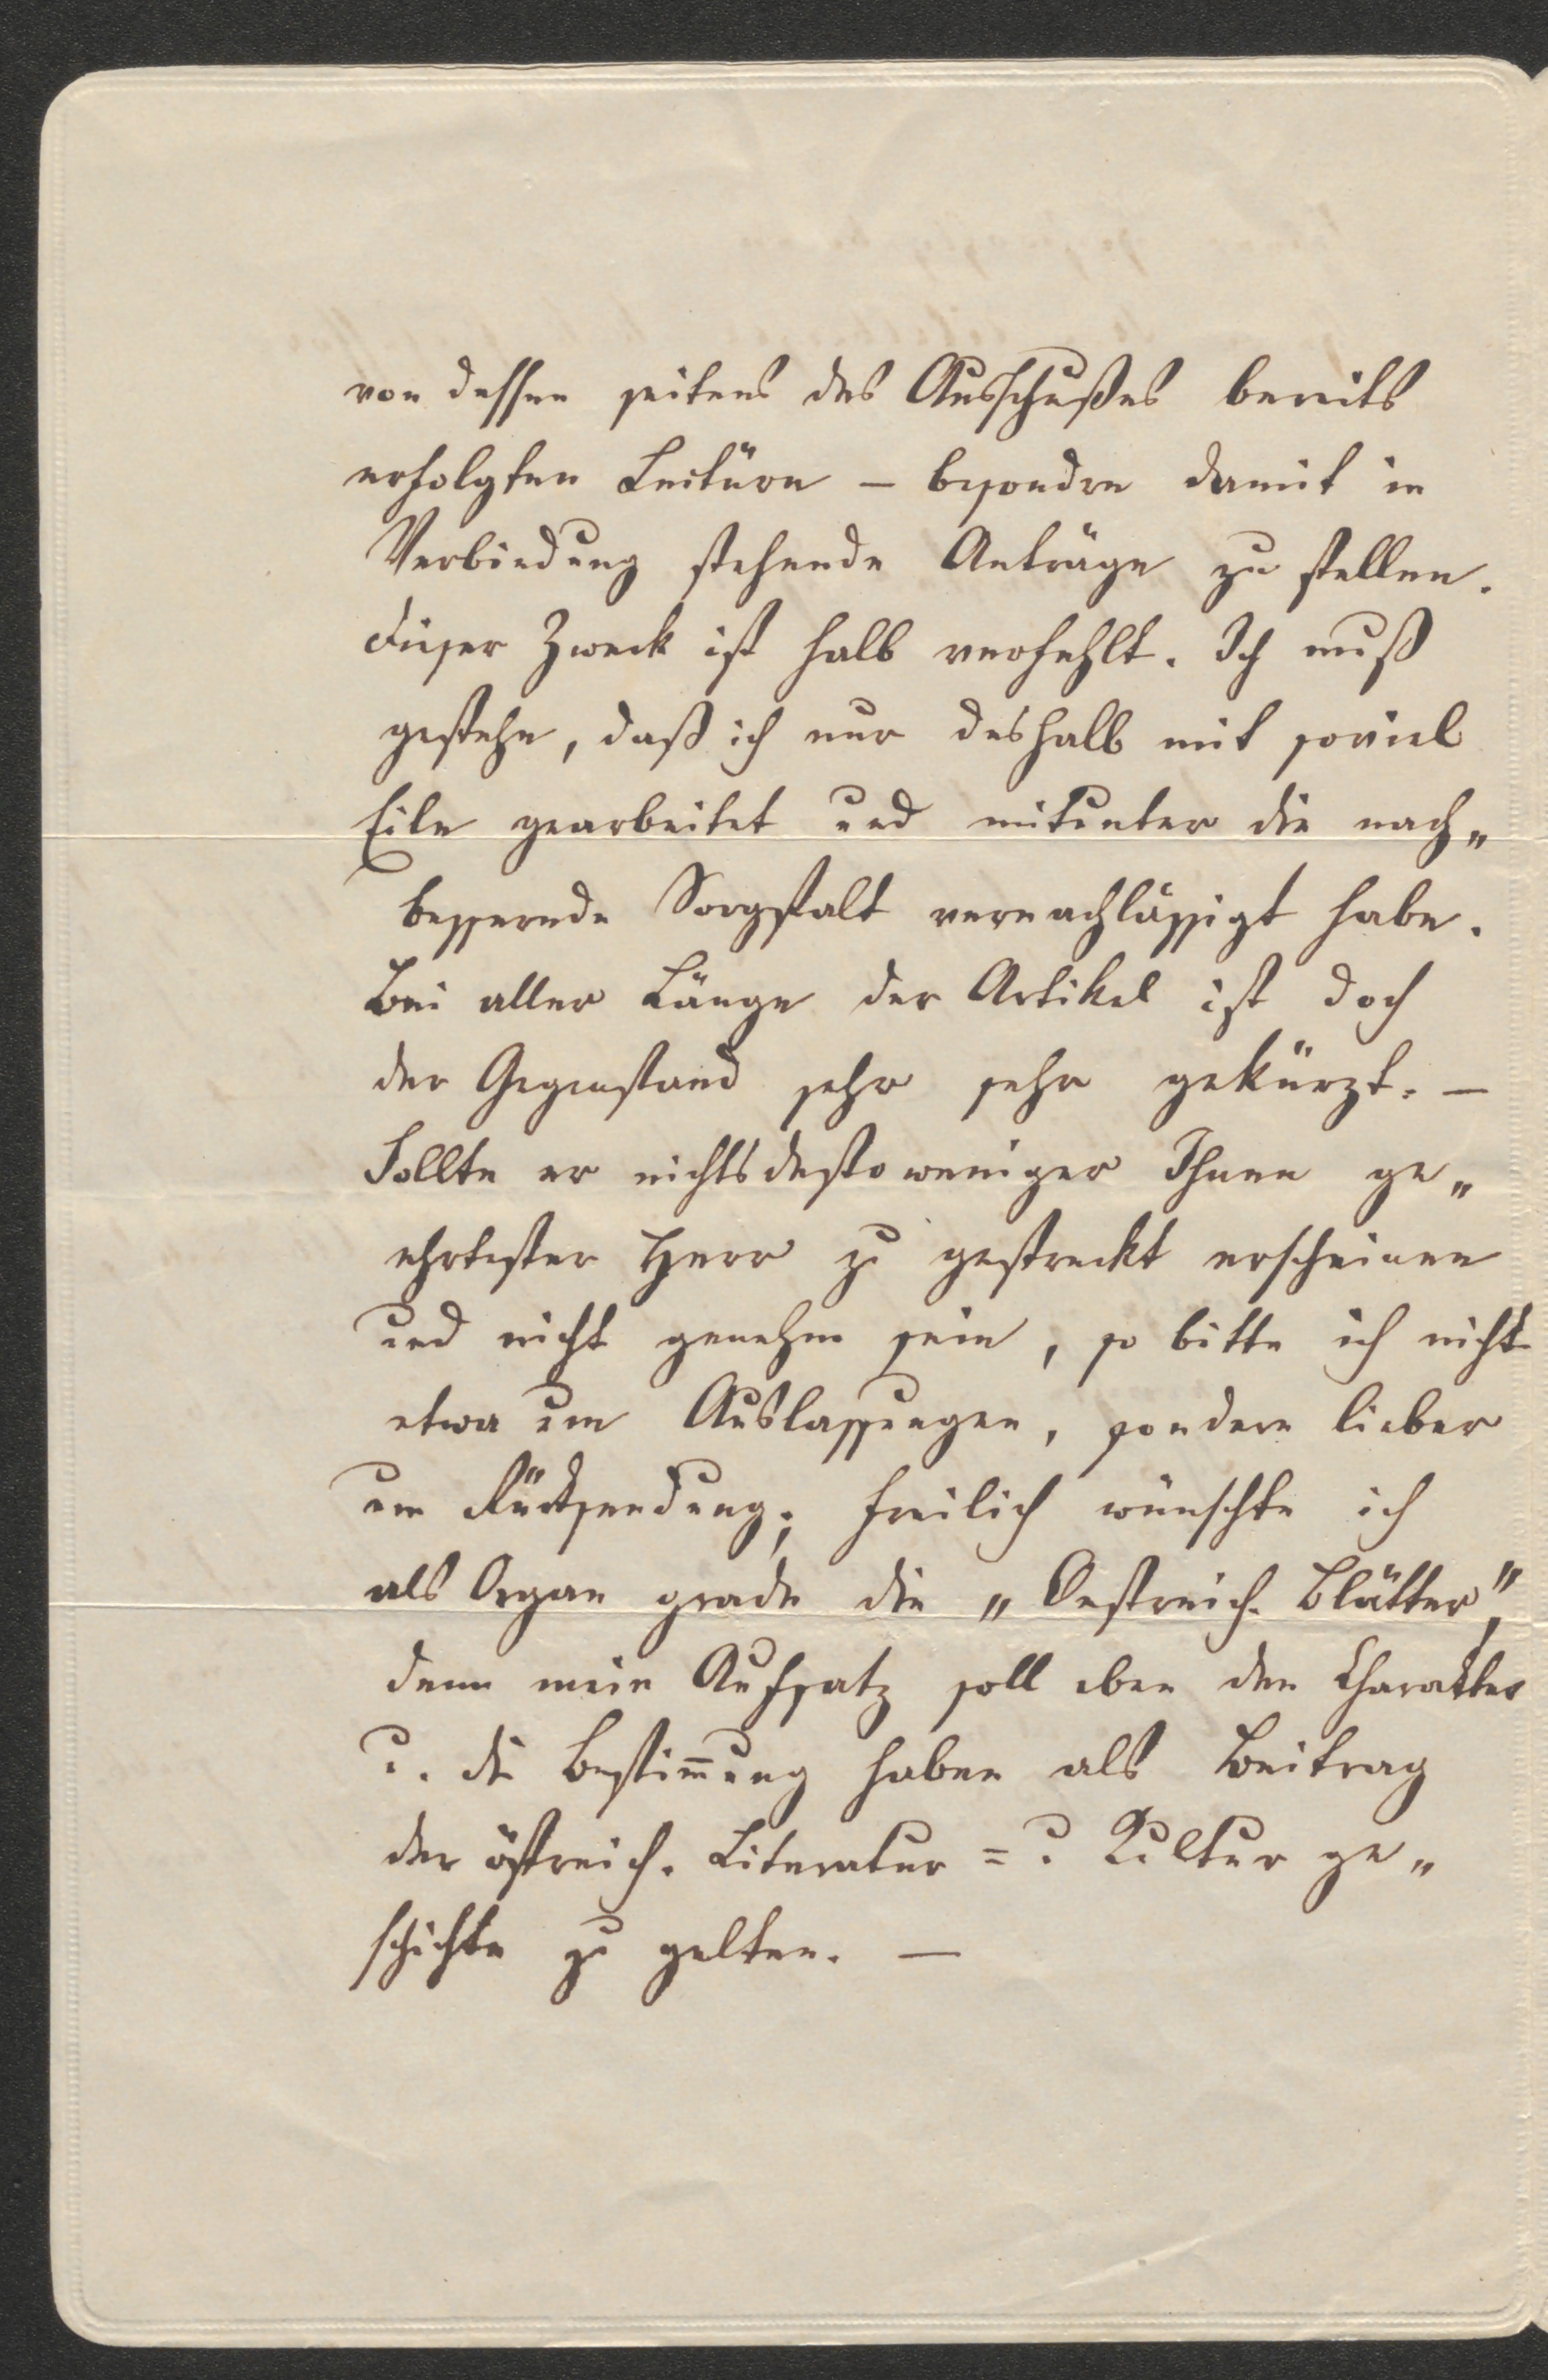 von dessen seitens des Ausschußes bereits
erfolgten Lectüre – besondre damit in
Verbindung stehende Anträge zu stellen.
Dieser Zweck ist halb verfehlt. Ich muß
gestehe, daß ich nur deshalb mit soviel
Eile gearbeitet und mitunter die nach„
bessernde Sorgfalt vernachlässigt habe.
Bei aller Länge der Artikel ist doch
der Gegenstand sehr sehr gekürzt. –
Sollte er nichtsdestoweniger Ihnen ge„
ehrtester Herr zu gestreckt erscheinen
und nicht genehm sein, so bitte ich nicht
etwa um Auslassungen, sondern lieber
um Rücksendung; freilich wünschte ich
als Organ grade die „Oestreich. Blätter",
denn mein Aufsatz soll eben den Charakter
u. die Bestim̅ung haben als Beitrag
der östreich. Literatur = u. Kultur ge„
schichte zu gelten. –